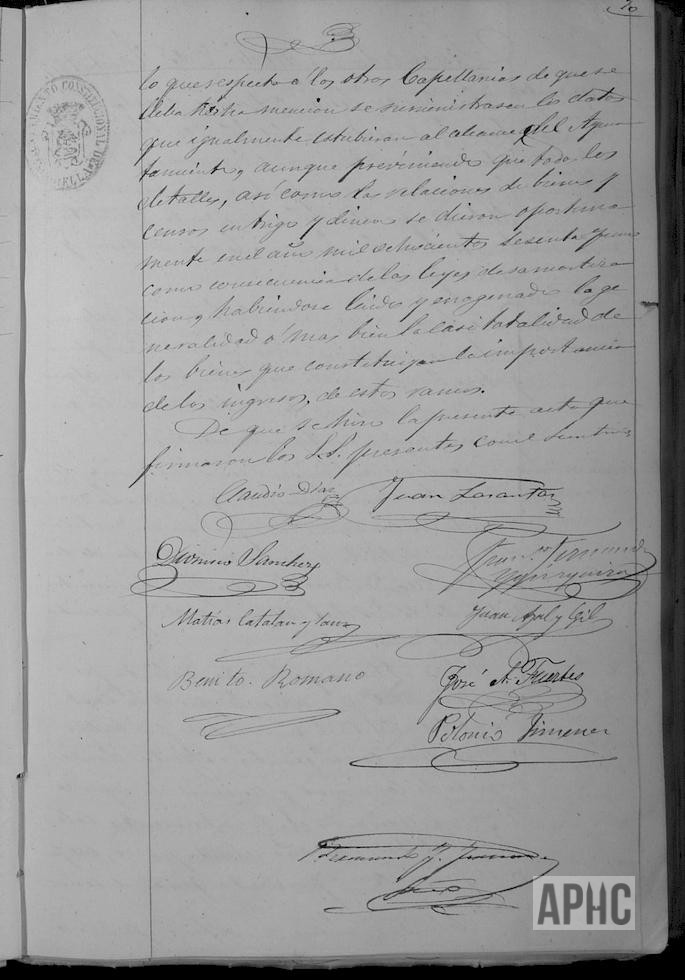 20
lo que respecta á los otros Capellanias de que se
deba hecha mencion se suministrasen los datos
que igualmente estubieran al alcance del Ayun
tamiento, aunque previniendo que todos los
detalles, así como las relaciones de bienes y
censos en trigo y dinero se dieron oportuna
mente en el año mil ochocientos sesenta y uno
como consecuencia de las leyes desamortiza
cion, habiendose y enagenado la ge
neralidad ó mas bien la casi totalidad de
los bienes que constituyan la importancia
de los ingresos, de estos ramos.
De que se hizo la presente acta que
firmaron los S.S. presentes con el
Claudio Diaz Juan Lasantas
Dionisio Sanchez
Matias Catalan y Juan Aval y Gil
Benito Romano José A. Fuertes
Polonio Jimenez
APHC